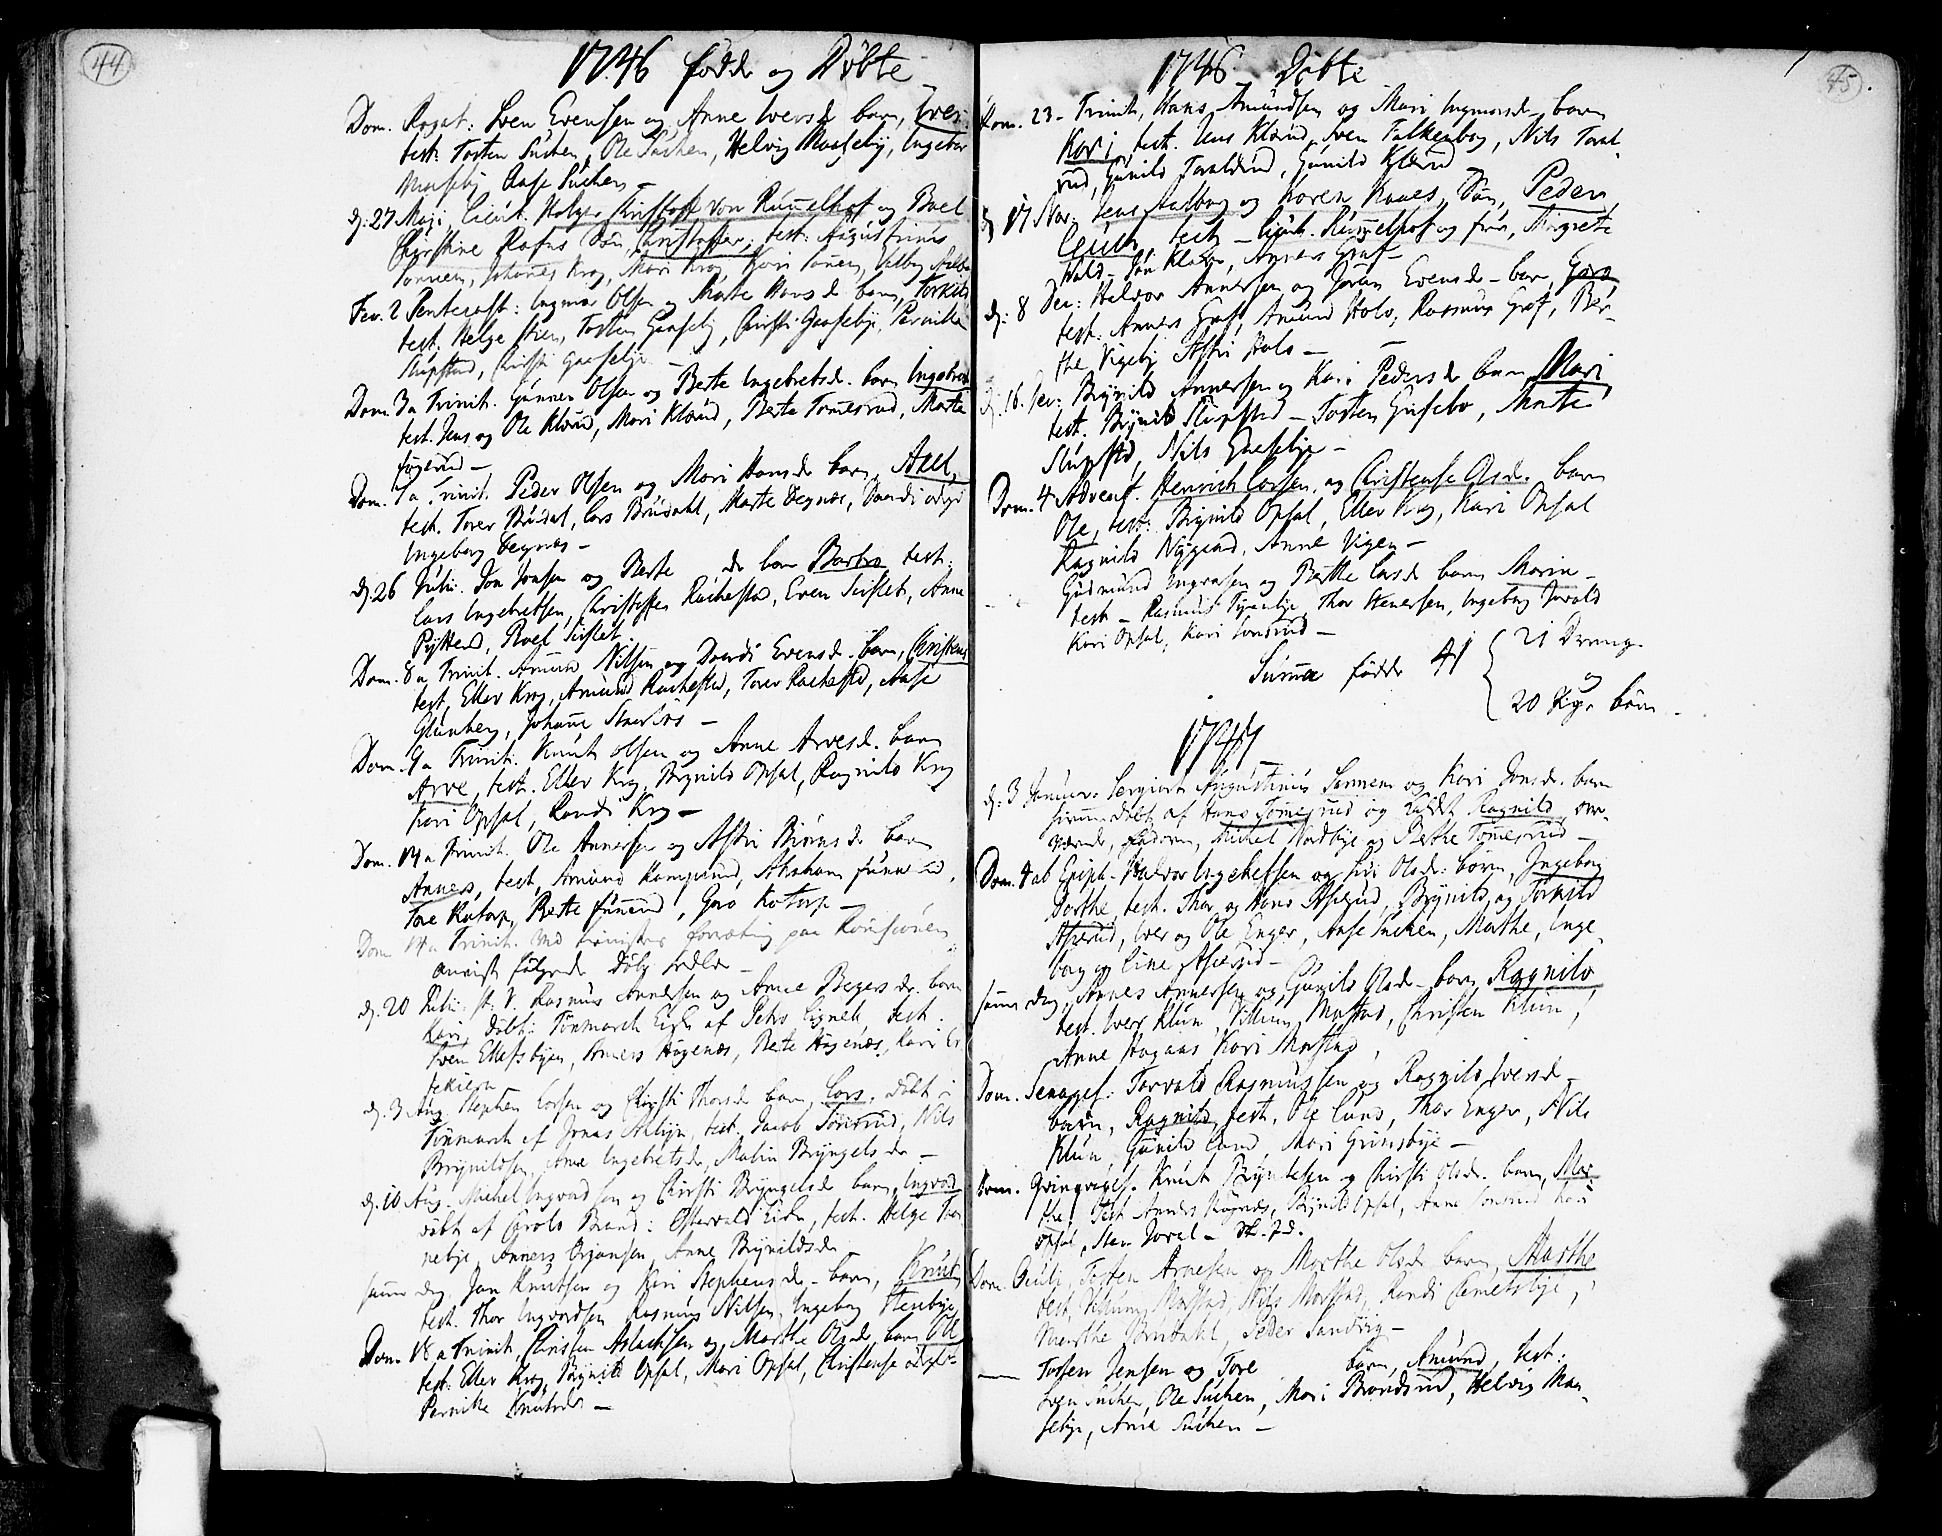 44
1746 fødde og Døbte
Dom. Rogat: Sven Evensen og Anne Iversd. barn, Iver
test: Tosten Suchen, Ole Suchen, Helvig Maaseby, Ingebor
Maaseby Aase Suchen –
d: 27 Maji Lieut. Holger Christoff von Rummelhof og Boel
Christine Rafns Søn, Christoffer, test: Augustinus
Sonnem, Johannes Krog, Mari Krog, Kari
Fer. 2 Pentecost: Ingmar Olsen og Marte Hansd. barn, Torkild
test: Helge Stien, Tosten Gaaseby, Christi Gaasebye, Pernille
Slupstad, Christi Gaasebye –
Dom. 3 a Trinit. Gunner Olsen og Berte Ingebretsd. barn Ingebret
test. Jens og Ole Klærud, Mari Klærud, Berte Tomesrud, Marte
Fogerud –
Dom. 7 a Trinit. Peder Olsen og Mari Hansd. barn, Axel,
test. Torer Brudal, Lars Brudahl, Marte Tegnæs,
Ingeborg Tegnæs –
d. 26 Juli: Jon Jonsen og Berte d. barn Barbro test:
Lars Ingebretsen, Christoffer Rachestad, Even Suslet, Anne
Pysterud, Roel Suslet
Dom. 8 a Trinit. Amund Nilsen og Dordi Evensd. barn, Christense
test, Eller Krog, Amund Rachestad, Torer Rachestad, Aase
Glenberg, Johanne
Dom. 9 a Trinit. Knut Olsen og Anne Arvesd. barn
Arve, test. Eller Krog, Brynild Opsal, Ragnild Krog
Kari Opsal, Randi Krog –
Dom. 14 a Trinit. Ole Annersen og Astri Biørnsd. barn
Anners, test, Amund Kamperud, Abraham Funnerud,
Tore Kotorp, Berte Funnerud, Gro Kotorp –
Dom 14 a Trinit. ved
følgende Døbz Sedler –
d. 20 Juli: st. V. Rasmus Annersen og Anne Begersd. barn
Kari, døbt: Tonmarch Eigh af Petro Eigneli test.
Sven Ellefsbyen, Anners Hugenæs, Berte Hugenæs, Kari Er
tekiern
d. 3 Aug. Stephen Larsen og Christi Thorsd. barn, Lars, døbt i
Tonmarch af Jonas test. Jacob Nils
Brynildsen, Anne Ingebretsd, Malin Bryngelsd –
d. 10 Aug. Michel Ingvordsen og Christi Bryngelsd barn, Ingvord
døbt af Carolo Brand: Østervald Eigh, test. Helge Tver
nebye, Anners Ørjansen, Anne Brynildsd –
samme dag Jan Knutsen og Kari Stephensd – barn, Knut
test. Thor Ingvordsen Rasmus Nilsen, Ingeborg Stenbye
Dom. 18 a Trinit, Christen Aslachsen og Marthe Olsd. barn Ole
test: Eller Krog, Brynild Opsal, Mari Opsal, Christense
Pernille Knutsd –
45
1746 Døbte
Dom. 23 – Trinit, Hans Amundsen og Mari Ingmarsd – barn
Kari, test. Jens Klærud, Sven Falkenborg, Nils Taral-
rud, Gunild Taraldrud, Gunild Klærud –
d. 17 Nov: Jens Aalborg og Karen Kaaes, Søn, Peder
test – Lieut. Rummelhof og frue, Margrete
Hald – Jon Anners Graf –
d: 8 Dec: Halvor Annersen og Joran Evensd – barn, Goro
test. Anners Graf, Amund Holo, Rasmus Graf, Ber-
the Vigeby Astri Holo –
d. 16. Dec: Brynild Annersen og Kari Pedersd. barn Mari
test. Brynild Slupstad – Tosten Gusebo, Marte
Slupstd, Nils Gaasebye –
Dom. 4 Advent. Henrich Larsen, og Christense Olsd. barn
Ole, test: Brynild Opsal, Eller Krog, Kari Opsal
Ragnild Nygaard, Anne Vigen –
Gudmund Ingvarsen og Berthe Larsd barn Marin –
test – Rasmus Thor Stenersen, Ingeborg Jorald
Kari Opsal, Kari –
Summa fødde 41 { 21 Dreng.
og
20 Pige børn –
1747
d. 3 Januar: Sergiant Augustinus Sonnem og Kari Jonsd. barn
hiemmedøbt af Hans Tomesrud og kaldt Ragnild, over
værende, Faderen, Michel Nordbye og Berthe Tomesrud –
Dom. 4 ab Epiph – Halvor Ingebretsen og Siri Olsd: børn, Ingeborg
Dorthe, test. Thor og Hans Asperud, Brynild og Torkild
Asperud, Iver og Ole Enger, Aase Suchen, Marthe, Inge-
borg og Line Asperud –
samme dag, Annes Annersen og Gunild Olsd – barn, Ragnild
test. Iver Klun, Villum Morstad, Christen Klun,
Anne Haganæs Kari Morstad,
Dom. Sexages: Torvald Rasmussen og Ragnild Iversd –
barn, Ragnild, test, Ole Lund, Thor Enger, Nils
Klun Gunild Lund Mari Grimsbye –
Dom. Qvinqvages. Knut Bryntesen og Christi Olsd. barn, Mar
the, Test Anners Hugenæs, Brynild Opsal, Anne Kari
Opsal, Sten Jorel –
Dom. Oculi, Tosten Arnesen og Marthe Olsd. barn, Marthe
test, Villum Morstad, Nils Morstad, Randi
Marthe Brudahl, Peder Sandvig –
— Tosten Jensen og Tore barn, Amund, test:
Sven Suchen, Ole Suchen, Mari Brandsrud, Helvig Maa-
sebye, Anne Suchen –